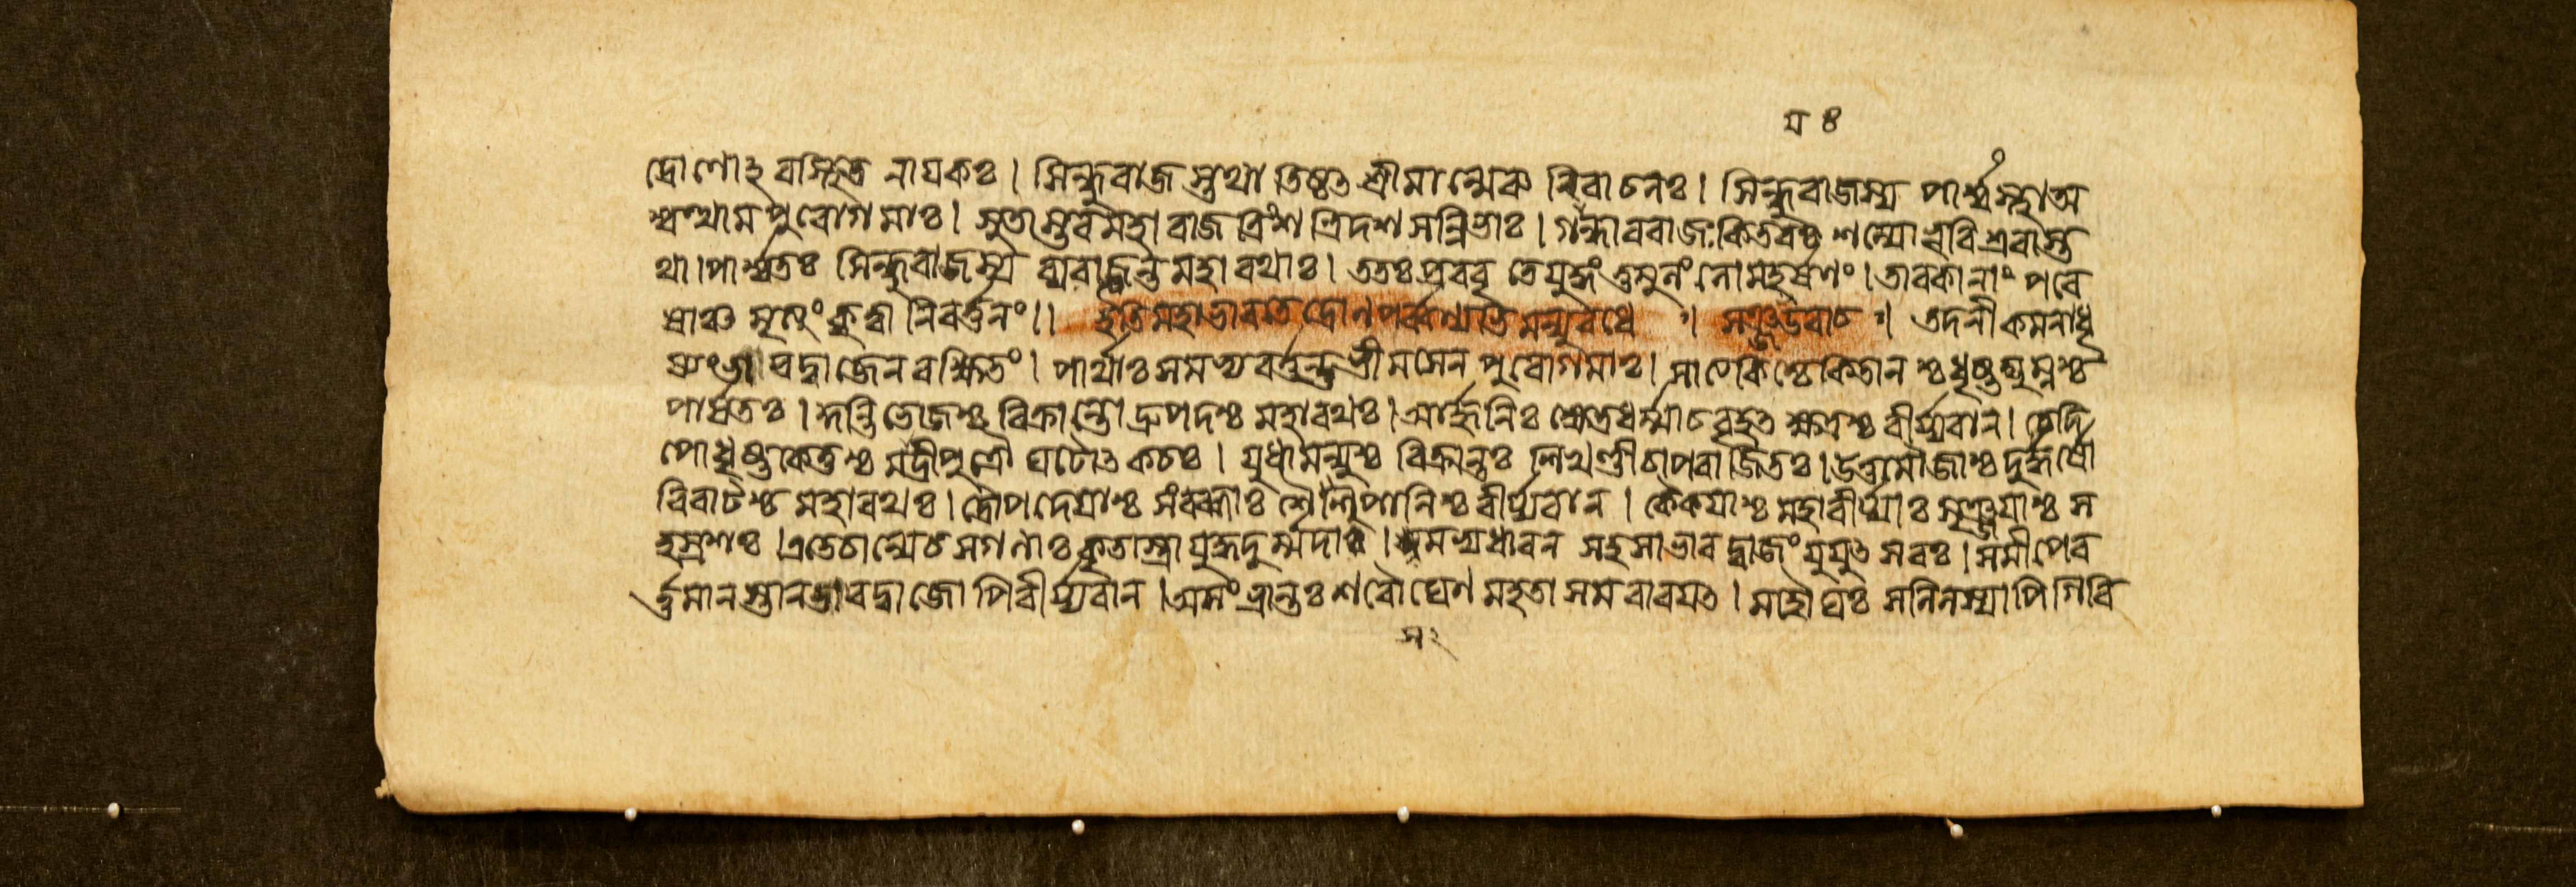 ম ৪
দ্রোণোঽবস্থিতে নাযকঃ। সিন্ধুৰাজ স্তথা তিষ্ঠৎ শ্রীমান্মেৰু ৰিবাচলঃ। সিন্ধুৰাজস্য পার্শ্বস্থা অ
শ্বত্থাম পুৰোগমাঃ। সুতাস্তব মহাৰাজ ত্রিংশ ত্রিদশ সন্নিভাঃ। গান্ধাৰৰাজঃ কিতবঃ শল্যো ভূৰিশ্রবাস্ত
থা। পার্শ্বতঃ সিন্ধুৰাজস্য ব্যৰাজন্ত মহাৰথাঃ। ততঃ প্রববৃতে যুদ্ধং তুমুলং লোমহর্ষণং। তাবকানাং পৰে
ষাঞ্চ মৃত্যুং কৃত্বা নিবর্ত্তনং।। ইতি মহাভাৰতে দ্রোণপর্ব্বণ্যভিমন্যুবধে ॥ সঞ্জয়উবাচ ॥ তদনীকমনাধৃ
ষ্যং ভাৰদ্বাজেন ৰক্ষিতং। পার্থাঃ সমভ্য বর্ত্তন্ত ভীমসেন পুৰোগমাঃ। সাত্যকিশ্চেকিতানশ্চ ধৃষ্টদ্যুম্নশ্চ
পার্ষতঃ। কুন্তিভোজশ্চ বিক্রান্তো দ্রুপদশ্চ মহাৰথঃ। আর্জ্জুনিঃ ক্ষেত্রধর্ম্মাচ বৃহৎ ক্ষত্রশ্চ বীর্য্যবান। চেদি
পো ধৃষ্টকেতুশ্চ মাদ্রীপুত্রৌ ঘটোৎকচঃ। যুধামন্যুশ্চ বিক্রান্তঃ শিখণ্ডীচাপৰাজিতঃ। উত্তমৌজাশ্চ দুর্দ্ধর্ষো
বিৰাটশ্চ মহাৰথঃ। দ্রৌপদেয়াশ্চ সংৰব্ধাঃ শৈশুপালিশ্চ বীর্য্যবান। কেকয়াশ্চ মহাবীর্য্যাঃ সৃঞ্জয়াশ্চ স
হস্রশঃ। এতেচান্যেচ সগণাঃ কৃতাস্ত্রা যুদ্ধদুর্ম্মদাঃ। সমভ্যধাবন সহসা ভাৰদ্বাজং যুযুৎসবঃ। সমীপেব
র্ত্তমানস্তানভাৰদ্বাজো পিবীর্য্যবান। অসংভ্রান্তঃ শৰৌঘেণ মহতা সমবাৰয়ৎ। মহৌঘঃ সলিলস্যাপি গিৰি